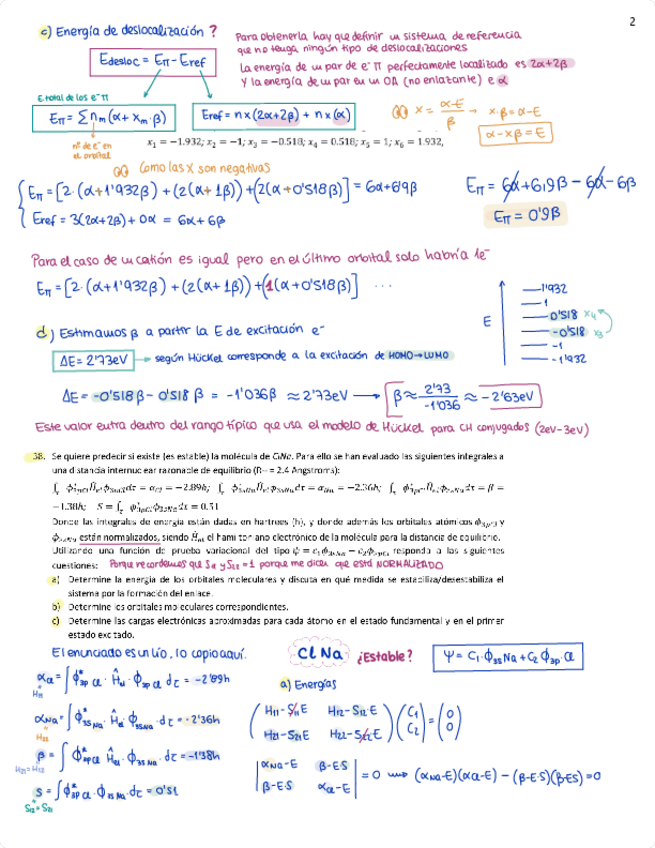 2
c) Energía de deslocalización ?
Para obtenerla hay que definir un sistema de referencia
que no tenga ningún tipo de deslocalizaciones
Edesloc = Eπ - Eref
La energía de un par de e⁻ π perfectamente localizado es 2α+2β
Y la energía de un par en un OA (no enlazante) es α
E total de los e⁻π
Eπ = Σ nm(α + xm·β)
Eref = n×(2α+2β) + n×(α)
x = α-E/β → x·β = α-E
α - xβ = E
nº de e⁻ en
el orbital
x₁ = −1.932; x₂ = −1; x₃ = −0.518; x₄ = 0.518; x₅ = 1; x₆ = 1.932,
Como las x son negativas
Eπ = [2·(α+1'932β) + (2(α+1β)) + (2(α+0'518β)] = 6α+6'9β
Eref = 3(2α+2β) + 0α = 6α + 6β
Eπ = 6α + 6,9β - 6α - 6β
Eπ = 0'9β
Para el caso de un catión es igual pero en el último orbital solo habría 1e⁻
Eπ = [2·(α+1'932β) + (2(α+1β)) + (1(α+0'518β)] ...
E
1'932
1
0'518 x₄
-0'518 x₃
-1
-1'932
d) Estimamos β a partir la E de excitación e⁻
ΔE = 2'73eV → según Hückel corresponde a la excitación de HOMO→LUMO
ΔE = -0'518β - 0'518β = -1'036β ≈ 2'73eV → β ≈ 2'73/-1'036 ≈ -2'63eV
Este valor entra dentro del rango típico que usa el modelo de Hückel para CH conjugados (2eV-3eV)
38. Se quiere predecir si existe (es estable) la molécula de ClNa. Para ello se han evaluado las siguientes integrales a
una distancia internuclear razonable de equilibrio (R= 2.4 Angstroms):
= −2.89h; = −2.36h; = β =
−1.38h; = 0.51
Donde las integrales de energía están dadas en hartrees (h), y donde además los orbitales atómicos y
están normalizados, siendo el hamiltoniano electrónico de la molécula para la distancia de equilibrio.
Utilizando una función de prueba variacional del tipo responda a las siguientes
cuestiones: Porque recordemos que S₁₁ y S₂₂ = 1 porque me dicen que está NORMALIZADO
a) Determine la energía de los orbitales moleculares y discuta en qué medida se estabiliza/desestabiliza el
sistema por la formación del enlace.
b) Determine los orbitales moleculares correspondientes.
c) Determine las cargas electrónicas aproximadas para cada átomo en el estado fundamental y en el primer
estado excitado.
El enunciado es un lío, lo copio aquí.
ClNa ¿Estable?
Ψ = C₁·Φ3sNa + C₂Φ3p·Cl
αCl = ∫Φ*3pCl·Ĥel·Φ3pCl dτ = -2'89h
H₁₁
a) Energías
αNa = ∫Φ*3sNa·Ĥel·Φ3sNa·dτ = -2'36h
H₂₂
(H₁₁-S₁₁E H₁₂-S₁₂·E) (C₁) = (0)
(H₂₁-S₂₁E H₂₂-S₂₂E) (C₂) (0)
β = ∫Φ*3pCl Ĥel·Φ3sNa dτ = -1'38h
H₂₁=H₁₂
|αNa-E β-ES|
|β-ES αCl-E| = 0 ⟿ (αNa-E)(αCl-E) - (β-ES)(β-ES) = 0
S = ∫Φ*3pCl·Φ3sNa·dτ = 0'51
S₁₂=S₂₁